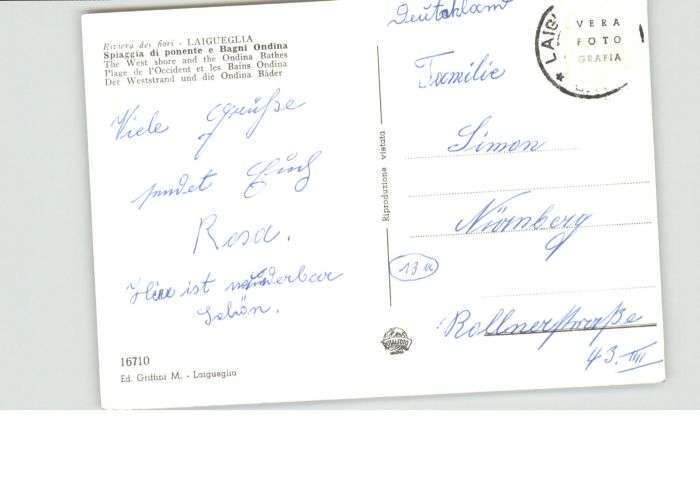 Riviera dei fiori - LAIGUEGLIA
Spiaggia di ponente e Bagni Ondina
The West shore and the Ondina Bathes
Plage de l'Occident et les Bains Ondina
Der Weststrand und die Ondina Bäder
Viele Grüße
sendet Euch
Rosa.
Hier ist wunderbar
schön.
16710
Ed. Griffini M. - Laigueglia
Riproduzione vietata
VERA
FOTO
GRAFIA
LAIG
Deutschland
Familie
Simon
Nürnberg
13a
Rollnerstraße
43. IIII